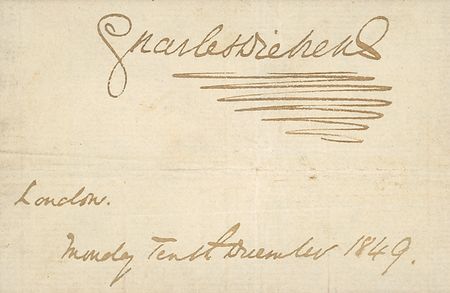 Charles Dickens
London.
Monday Tenth December 1849.